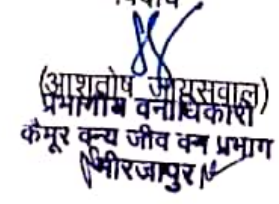 (आशतोष जायसवाल)
प्रभागीय वनाधिकारी
कैमूर वन्य जीव वन प्रभाग
मीरजापुर।